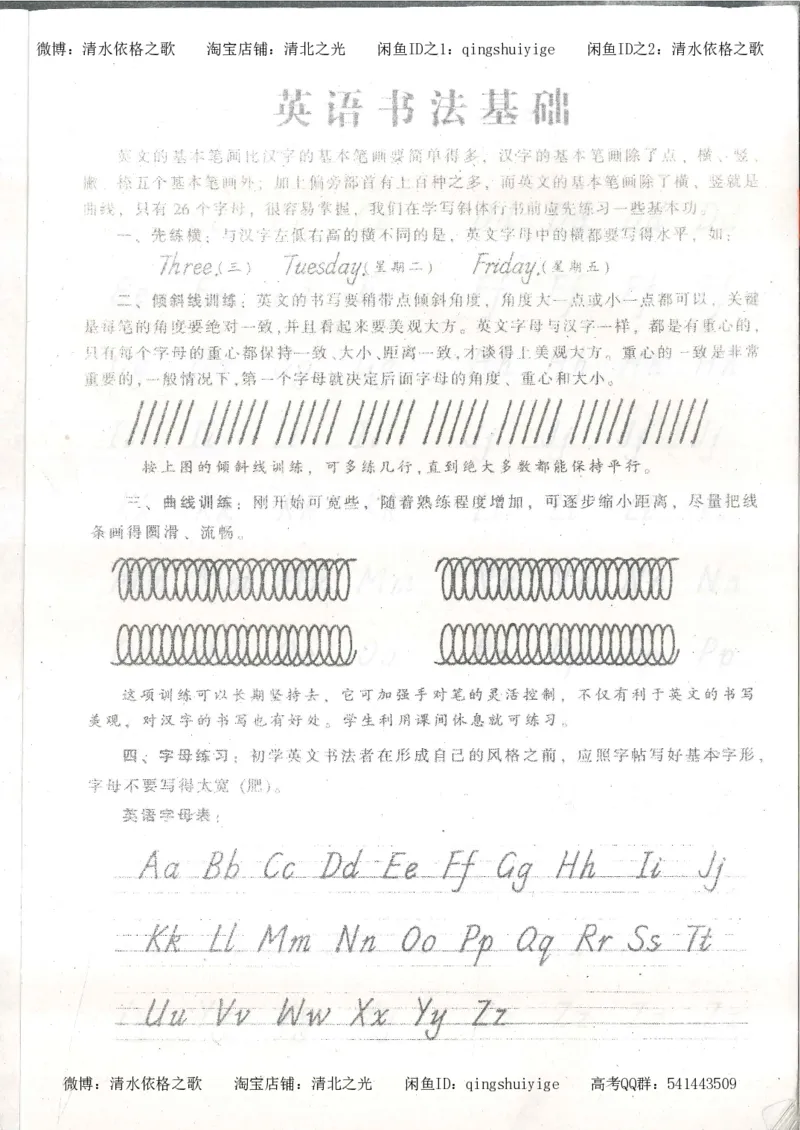 微博：清水依格之歌 淘宝店铺：清北之光 闲鱼ID之1：qingshuiyige 闲鱼ID之2：清水依格之歌
英语书法基础
英文的基本笔画比汉字的基本笔画要简单得多，汉字的基本笔画除了点、横、竖、
撇、捺五个基本笔画外，加上偏旁部首有上百种之多，而英文的基本笔画除了横、竖就是
曲线，只有26个字母，很容易掌握，我们在学写斜体行书前应先练习一些基本功。
一、先练横：与汉字左低右高的横不同的是，英文字母中的横都要写得水平，如：
Three.(三) Tuesday.(星期二) Friday.(星期五)
二、倾斜线训练：英文的书写要稍带点倾斜角度，角度大一点或小一点都可以，关键
是每笔的角度要绝对一致，并且看起来要美观大方。英文字母与汉字一样，都是有重心的，
只有每个字母的重心都保持一致、大小、距离一致，才谈得上美观大方。重心的一致是非常
重要的，一般情况下，第一个字母就决定后面字母的角度、重心和大小。
按上图的倾斜线训练，可多练几行，直到绝大多数都能保持平行。
三、曲线训练：刚开始可宽些，随着熟练程度增加，可逐步缩小距离，尽量把线
条画得圆滑、流畅。
这项训练可以长期坚持去，它可加强手对笔的灵活控制，不仅有利于英文的书写
美观，对汉字的书写也有好处。学生利用课间休息就可练习。
四、字母练习：初学英文书法者在形成自己的风格之前，应照字帖写好基本字形，
字母不要写得太宽（肥）。
英语字母表：
Aa Bb Cc Dd Ee Ff Gg Hh Ii Jj
Kk Ll Mm Nn Oo Pp Qq Rr Ss Tt
Uu Vv Ww Xx Yy Zz
微博：清水依格之歌 淘宝店铺：清北之光 闲鱼ID：qingshuiyige 高考QQ群：541443509